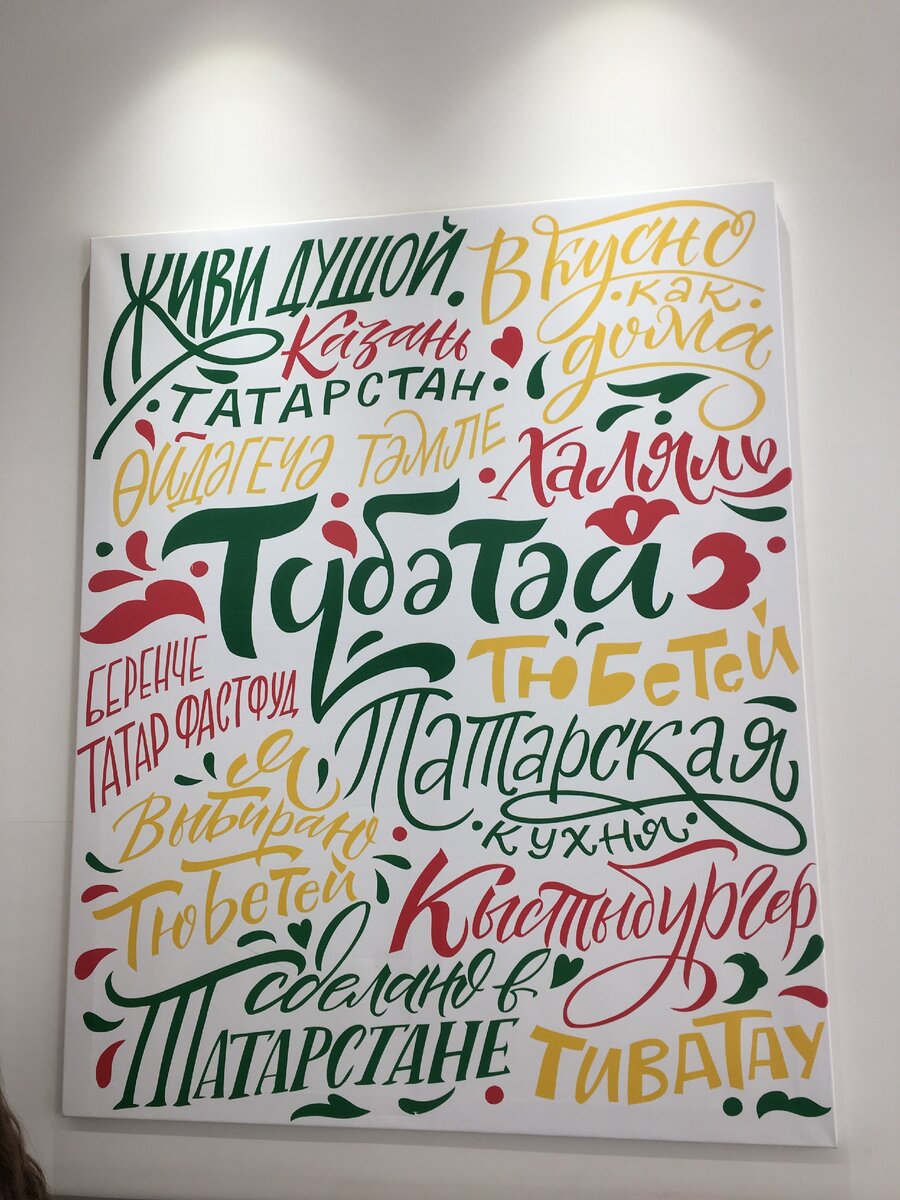 Живи душой.
Вкусно
·как·
дома
Казань
·Татарстан·
Өйдәгечә тәмле
·Халяль
Түбәтәй
Тюбетей
Беренче
татар фастфуд
Татарская
·кухня·
я
выбираю
Тюбетей
Кыстыбургер
сделано в
Татарстане
Тиватау